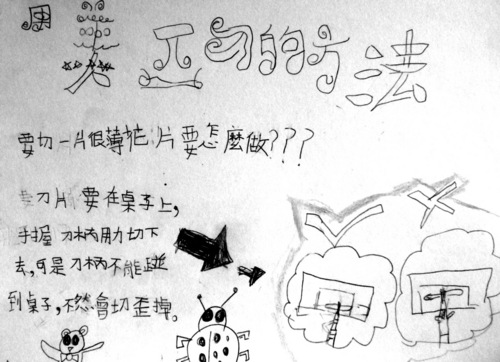 用美工刀的方法
要切一片很薄片要怎麼做???
刀片要在桌子上,
手握刀柄用力切下
去,可是刀柄不能碰
到桌子,不然會切歪掉。